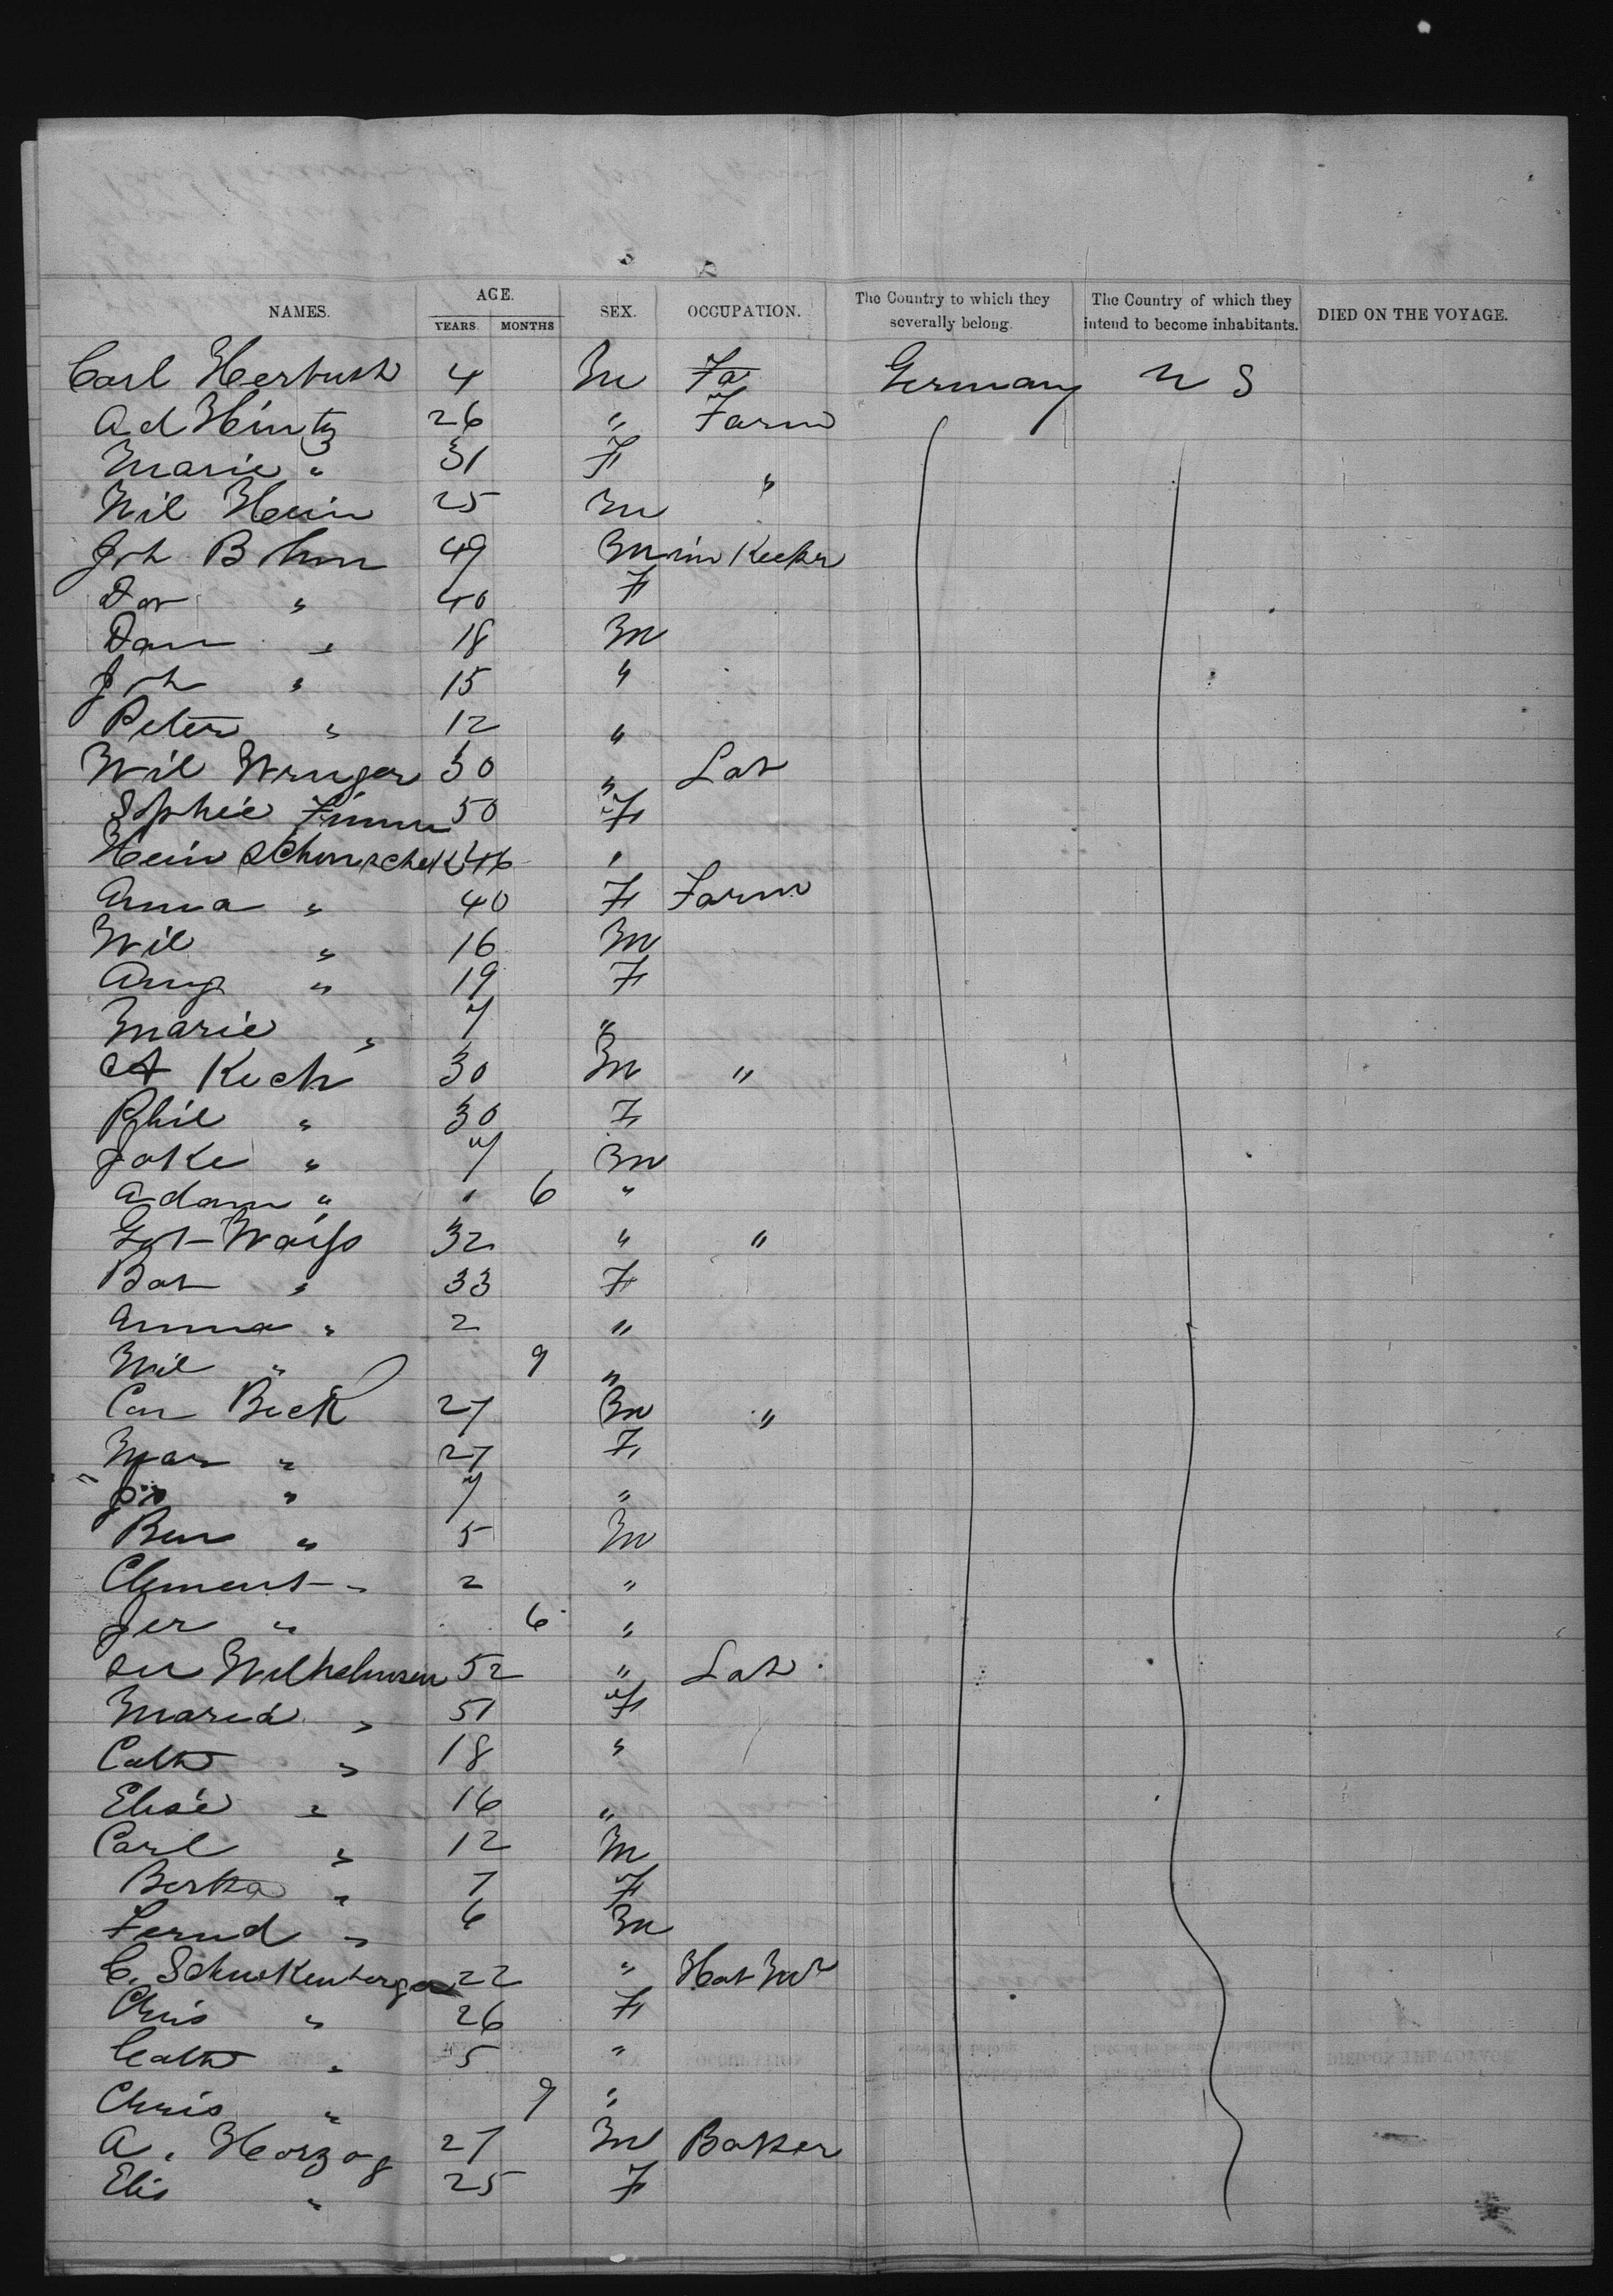 NAMES. AGE. YEARS. MONTHS SEX. OCCUPATION. The Country to which they severally belong. The Country of which they intend to become inhabitants. DIED ON THE VOYAGE.
Carl Herbush 4 M Fa Germany U S
Ad Hintz 26 " Farm
Marie " 31 F "
Wil Hein 25 M
Joh B 49 M Keeper
Dor " 40 F
Dan " 18 M
Joh " 15 "
Peter " 12 "
Wil Wruger 30 " Lab
Sophie Zimm 50 F
Hein 46 "
Anna " 40 F Farm
Wil " 16 M
Aug " 19 F
Marie " 7 "
A Kech 30 M "
Phil " 30 F
Jake " 7 M
Adam " " 6 "
Got Waiss 32 " "
Bar " 33 F
Anna " 2 "
Wil " 9 "
Car Beck 27 M "
Mar " 27 F
" 7 "
Ben " 5 M
Clement " 2 "
Jer " 6 "
Wilhelmsen 52 " Lab
Maria " 51 F
Cath " 18 "
Elise " 16 "
Carl " 12 M
Bertha " 7 F
Fernd " 6 M
C. Schnekenberger 22 " Hat Mr
Chris " 26 F
Cath " 5 "
Chris " 9 "
A. Herzog 27 M Baker
Elis " 25 F